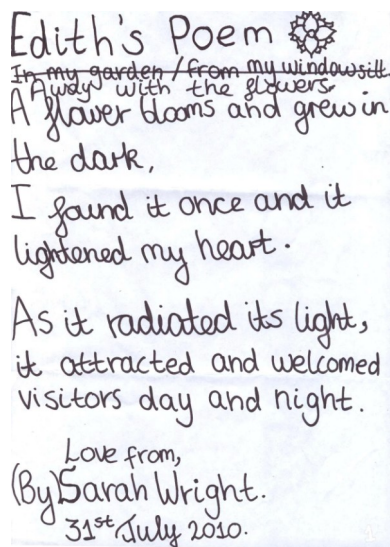 Edith's Poem
In my garden / from my windowsill
Away with the flowers.
A flower blooms and grew in
the dark,
I found it once and it
lightened my heart.
As it radiated its light,
it attracted and welcomed
visitors day and night.
Love from,
(By) Sarah Wright.
31st July 2010.